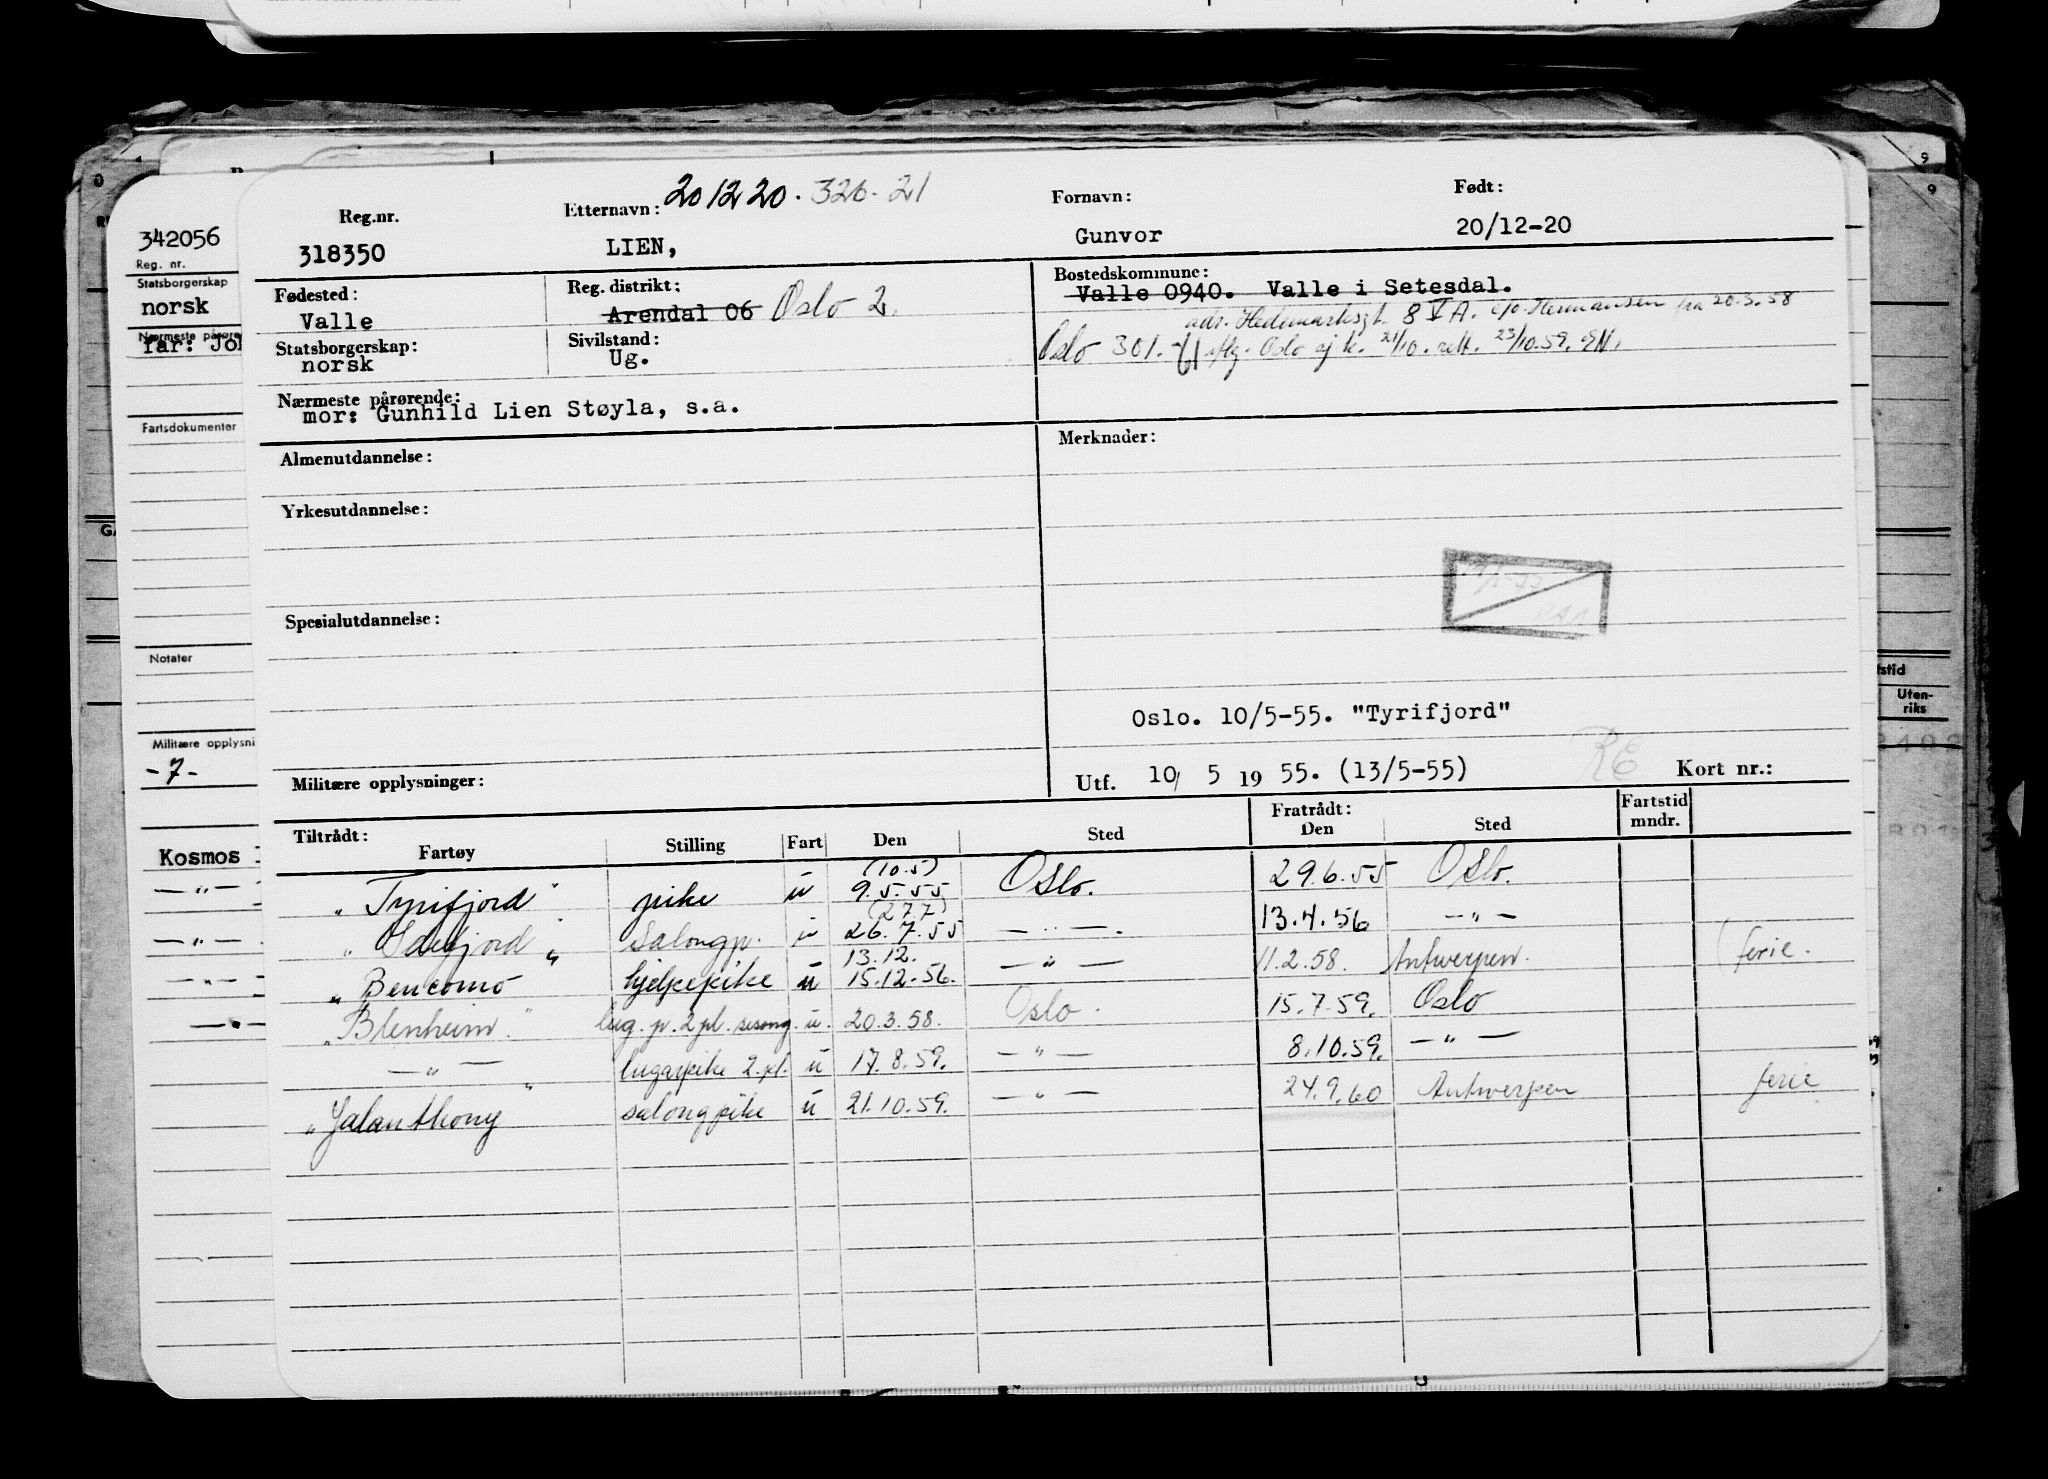 20 12 20. 326-21
Reg.nr. Etternavn: Fornavn: Født:
318350 LIEN, Gunvor 20/12-20
Fødested: Reg. distrikt: Bostedskommune:
Valle Arendal 06 Oslo 2. Valle 0940. Valle i Setesdal.
adr. Hedemarksgt. 8 V A. c/o Hermansen fra 20.3.58
Statsborgerskap: Sivilstand:
norsk Ug. Oslo 301. Oslo 21/10. 23/10.59.
Nærmeste pårørende:
mor: Gunhild Lien Støyla, s.a.
Almenutdannelse: Merknader:
Yrkesutdannelse:
Spesialutdannelse:
Oslo. 10/5-55. "Tyrifjord"
RE
Militære opplysninger: Utf. 10/ 5 19 55. (13/5-55) Kort nr.:
Tiltrådt: Fratrådt: Fartstid mndr.
Fartøy Stilling Fart Den Sted Den Sted
(10.5)
"Tyrifjord" pike u 9.5.55 Oslo. 29.6.55 Oslo.
(27.7)
"Idefjord" salongp. u 26.7.55 —"—. 13.4.56 —"—
13.12.
"Bencomo" hjelpepike u 15.12.56. —"— 11.2.58. Antwerpen. ferie.
"Blenheim" lug.p. 2 pl. sesong. u. 20.3.58. Oslo. 15.7.59. Oslo
—"— lugarpike 2.pl. u 17.8.59. —"— 8.10.59. —"—
"Jalanthony" salongpike u 21.10.59. —"— 24.9.60 Antwerpen ferie
342056
Reg. nr.
Statsborgerskap
norsk
Nærmeste pårøre
far: Jo
Fartsdokumenter
Notater
Militære opplysni
-7-
Kosmos
—"—
—"—
—"—
—"—
tstid
Uten-
riks